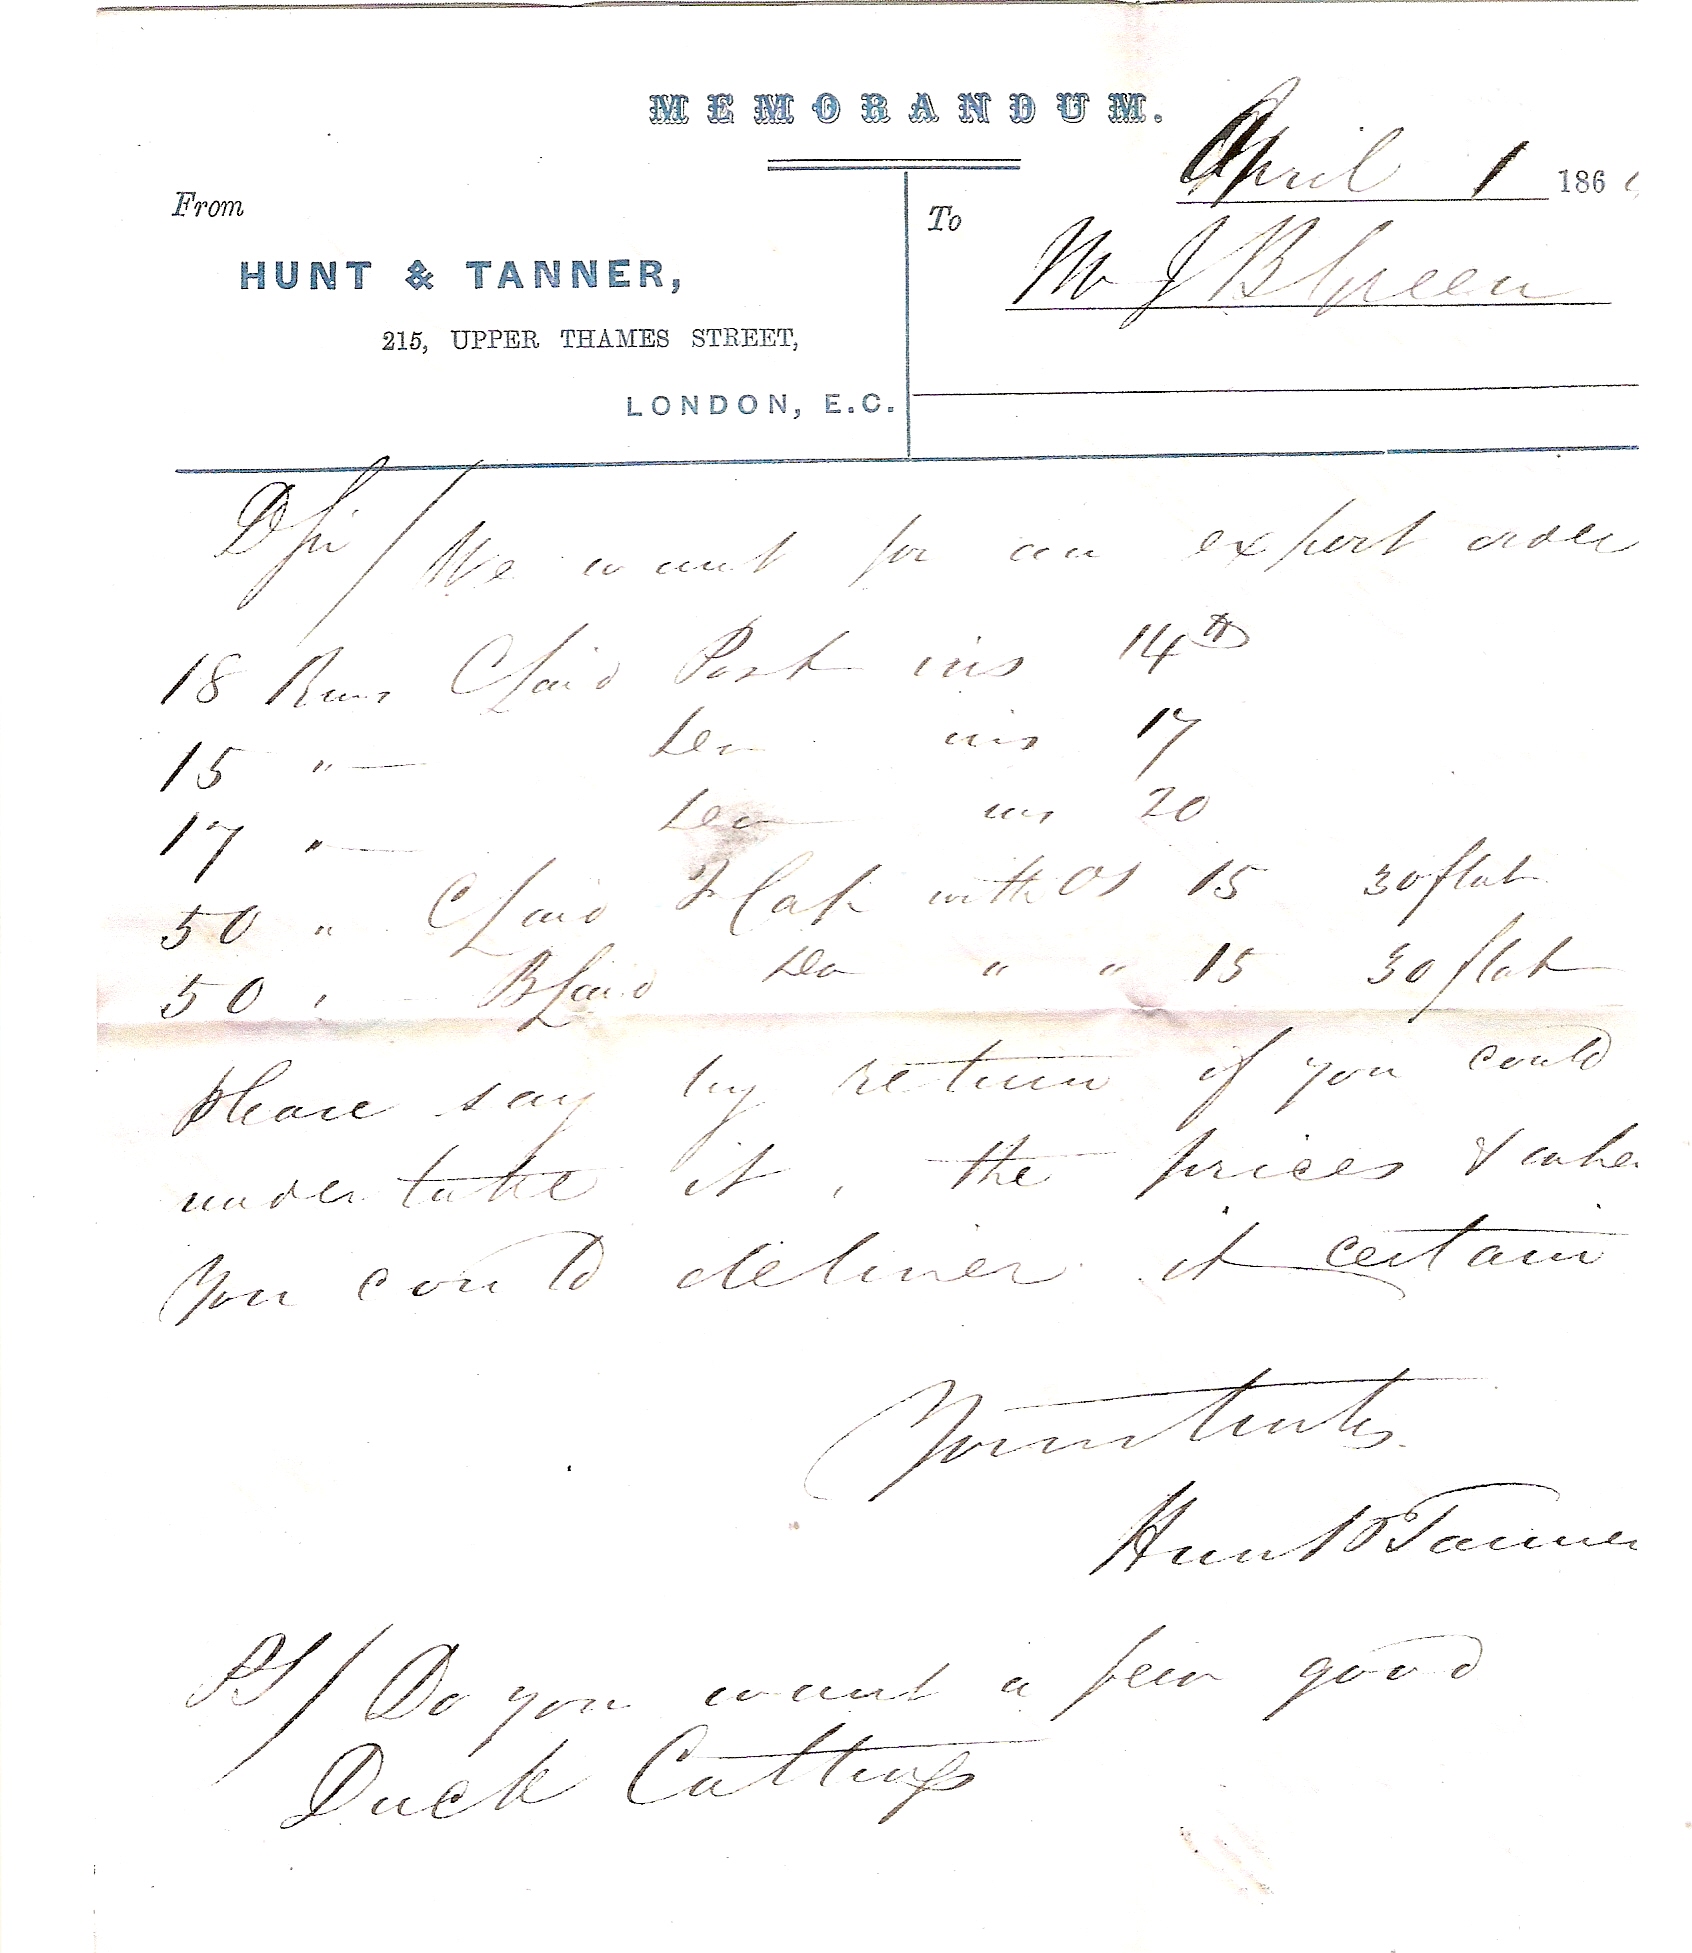 MEMORANDUM.
April 1 186
From
To
Mr J B Green
HUNT & TANNER,
215, UPPER THAMES STREET,
LONDON, E.C.
D Sir / We want for an export order
18 Rms C Laid Post ins 14 lb
15 " — Do ins 17
17 " — Do ins 20
50 " C Laid F Cap with 15 30 flat
50 " B Laid Do " " 15 30 flat
Please say by return if you could
undertake it, the prices & when
You could deliver it certain
Yours truly
Hunt & Tanner
PS / Do you want a few good
Duck Cuttings